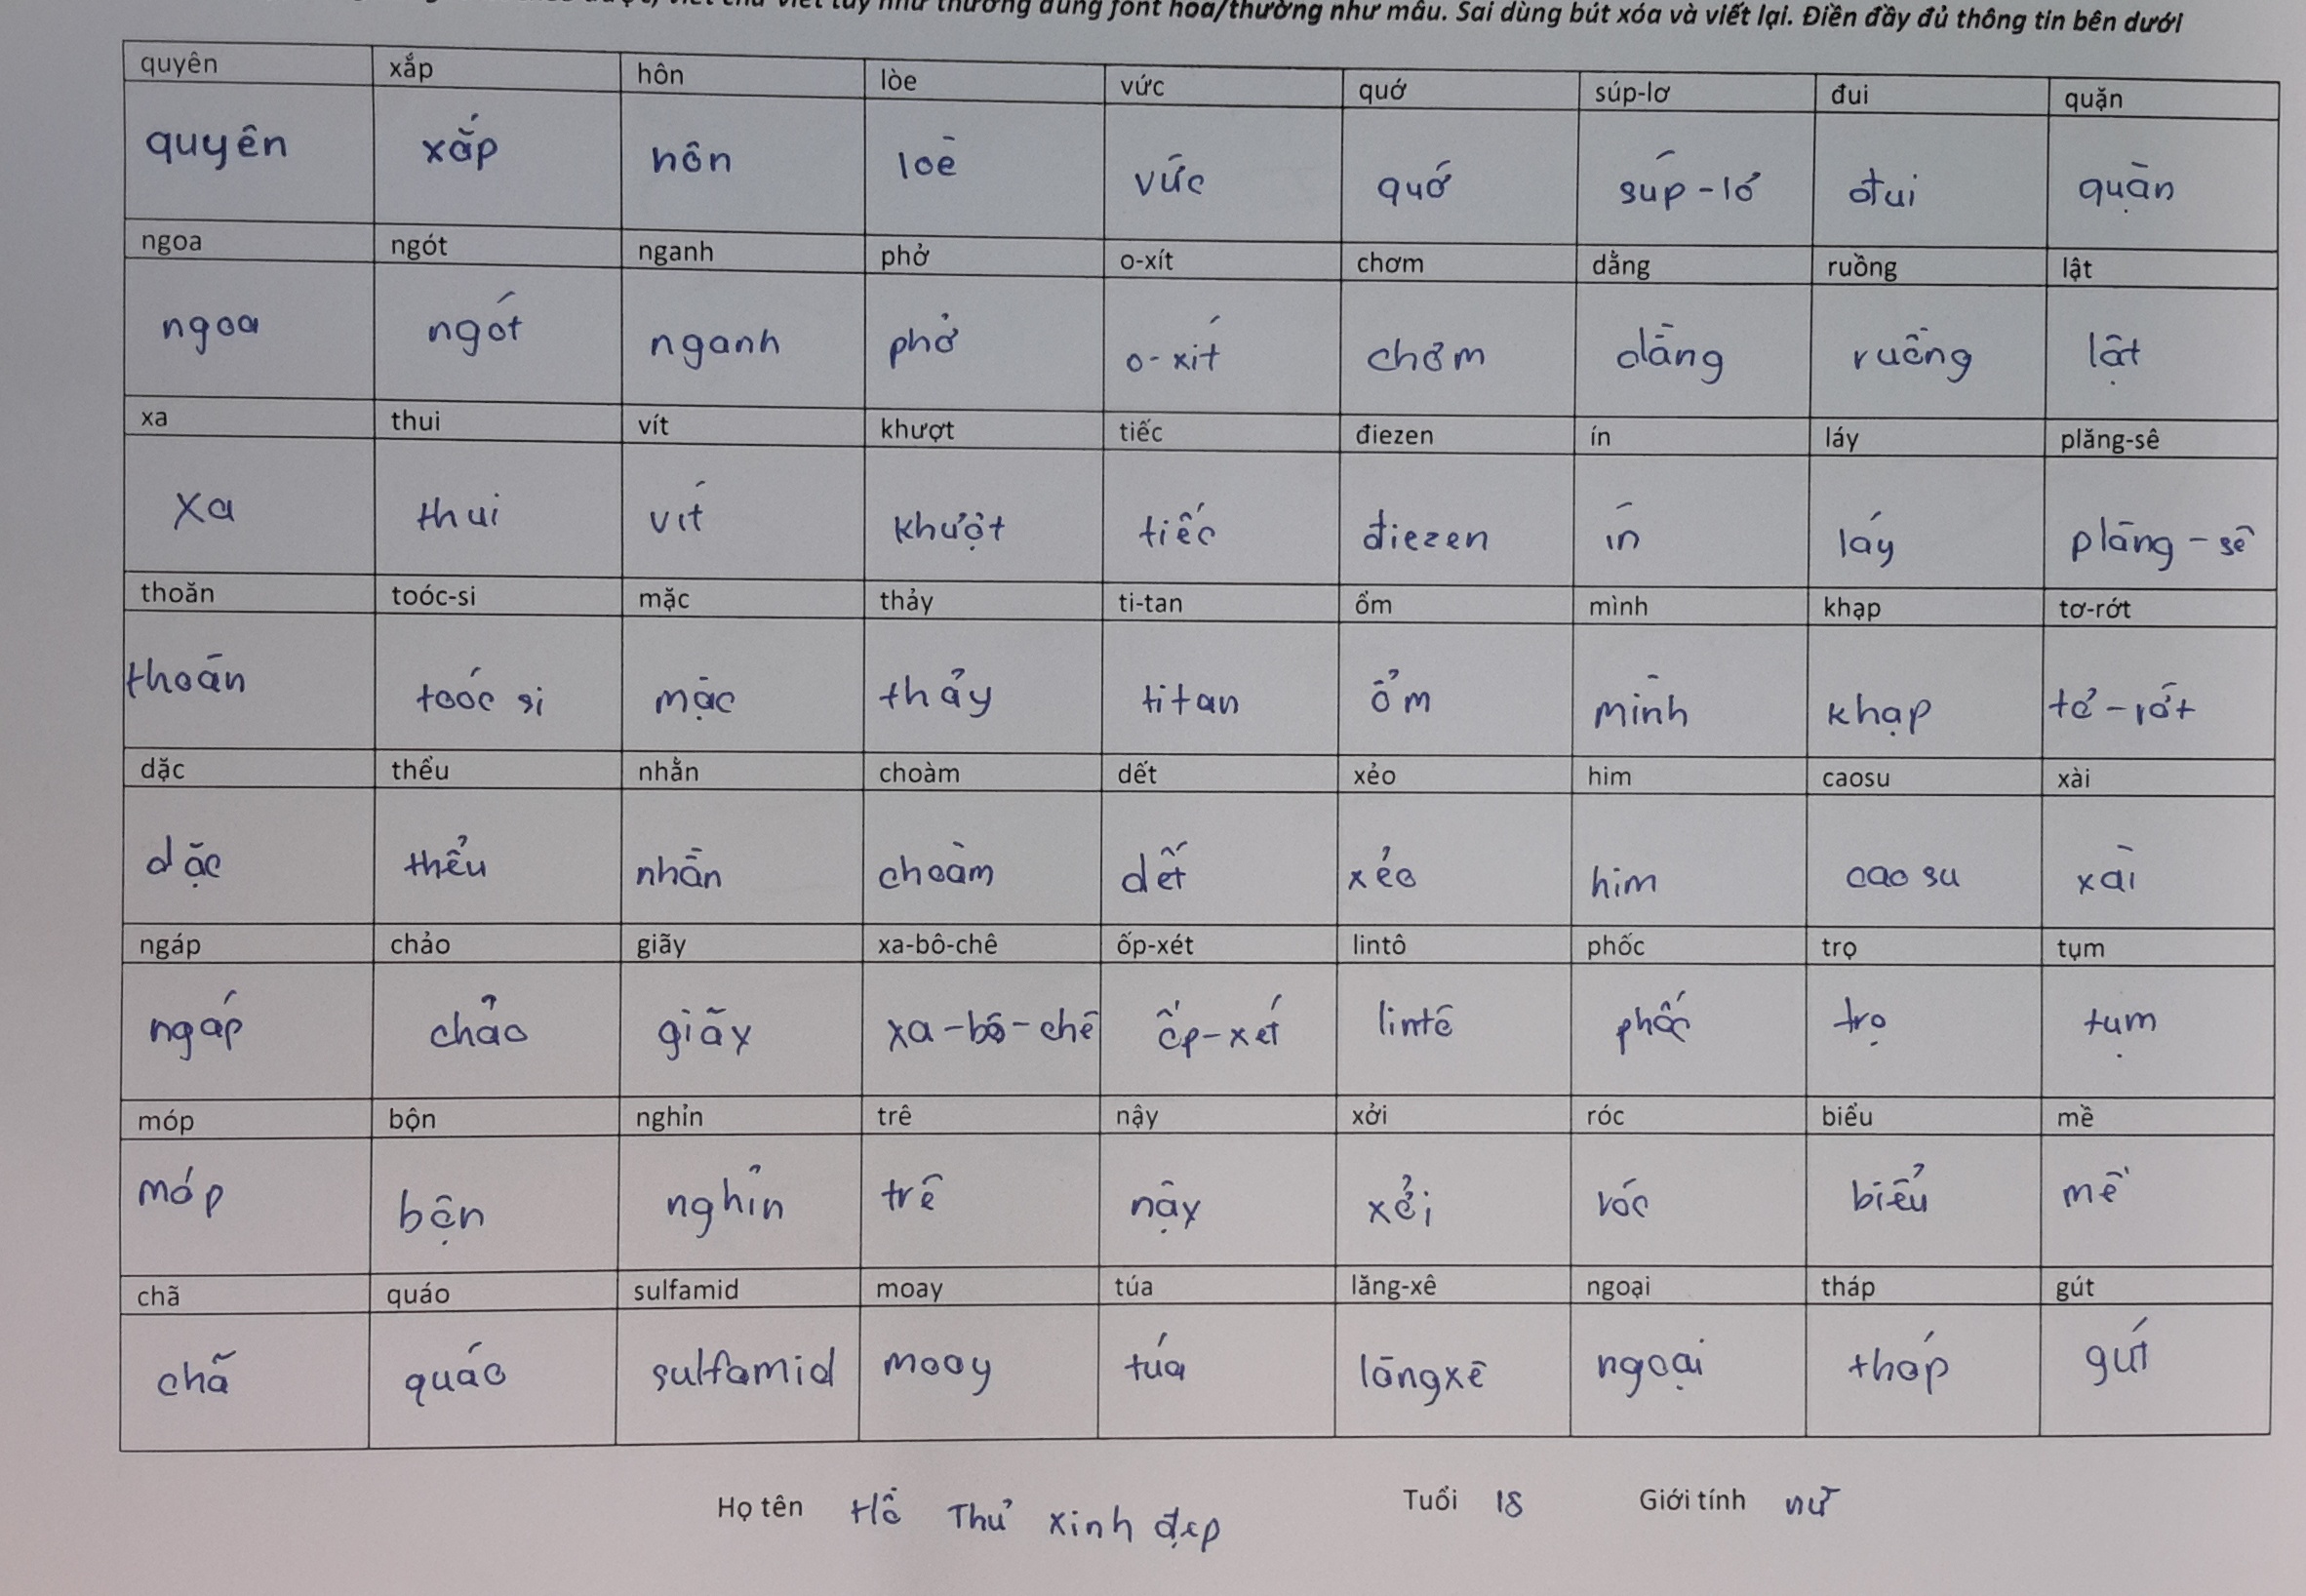 viết chữ viết tay như thường dùng font hoa/thường như mẫu. Sai dùng bút xóa và viết lại. Điền đầy đủ thông tin bên dưới
quyên xắp hôn lòe vức quớ súp-lơ đui quặn
quyên xắp hôn loè vức quớ súp-lơ đui quặn
ngoa ngót nganh phở o-xít chơm dằng ruồng lật
ngoa ngót nganh phở o-xít chơm dằng ruồng lật
xa thui vít khượt tiếc điezen ín láy plăng-sê
xa thui vít khượt tiếc điezen ín láy plăng-sê
thoăn toóc-si mặc thảy ti-tan ổm mình khạp tơ-rớt
thoăn toóc si mặc thảy titan ổm mình khạp tơ-rớt
dặc thểu nhằn choàm dết xẻo him caosu xài
dặc thểu nhằn choàm dết xẻo him cao su xài
ngáp chảo giãy xa-bô-chê ốp-xét lintô phốc trọ tụm
ngáp chảo giãy xa-bô-chê ốp-xét lintô phốc trọ tụm
móp bộn nghỉn trê nậy xởi róc biểu mề
móp bộn nghỉn trê nậy xởi róc biểu mề
chã quáo sulfamid moay túa lăng-xê ngoại tháp gút
chã quáo sulfamid moay túa lăngxê ngoại tháp gút
Họ tên Hồ Thư xinh đẹp Tuổi 18 Giới tính nữ